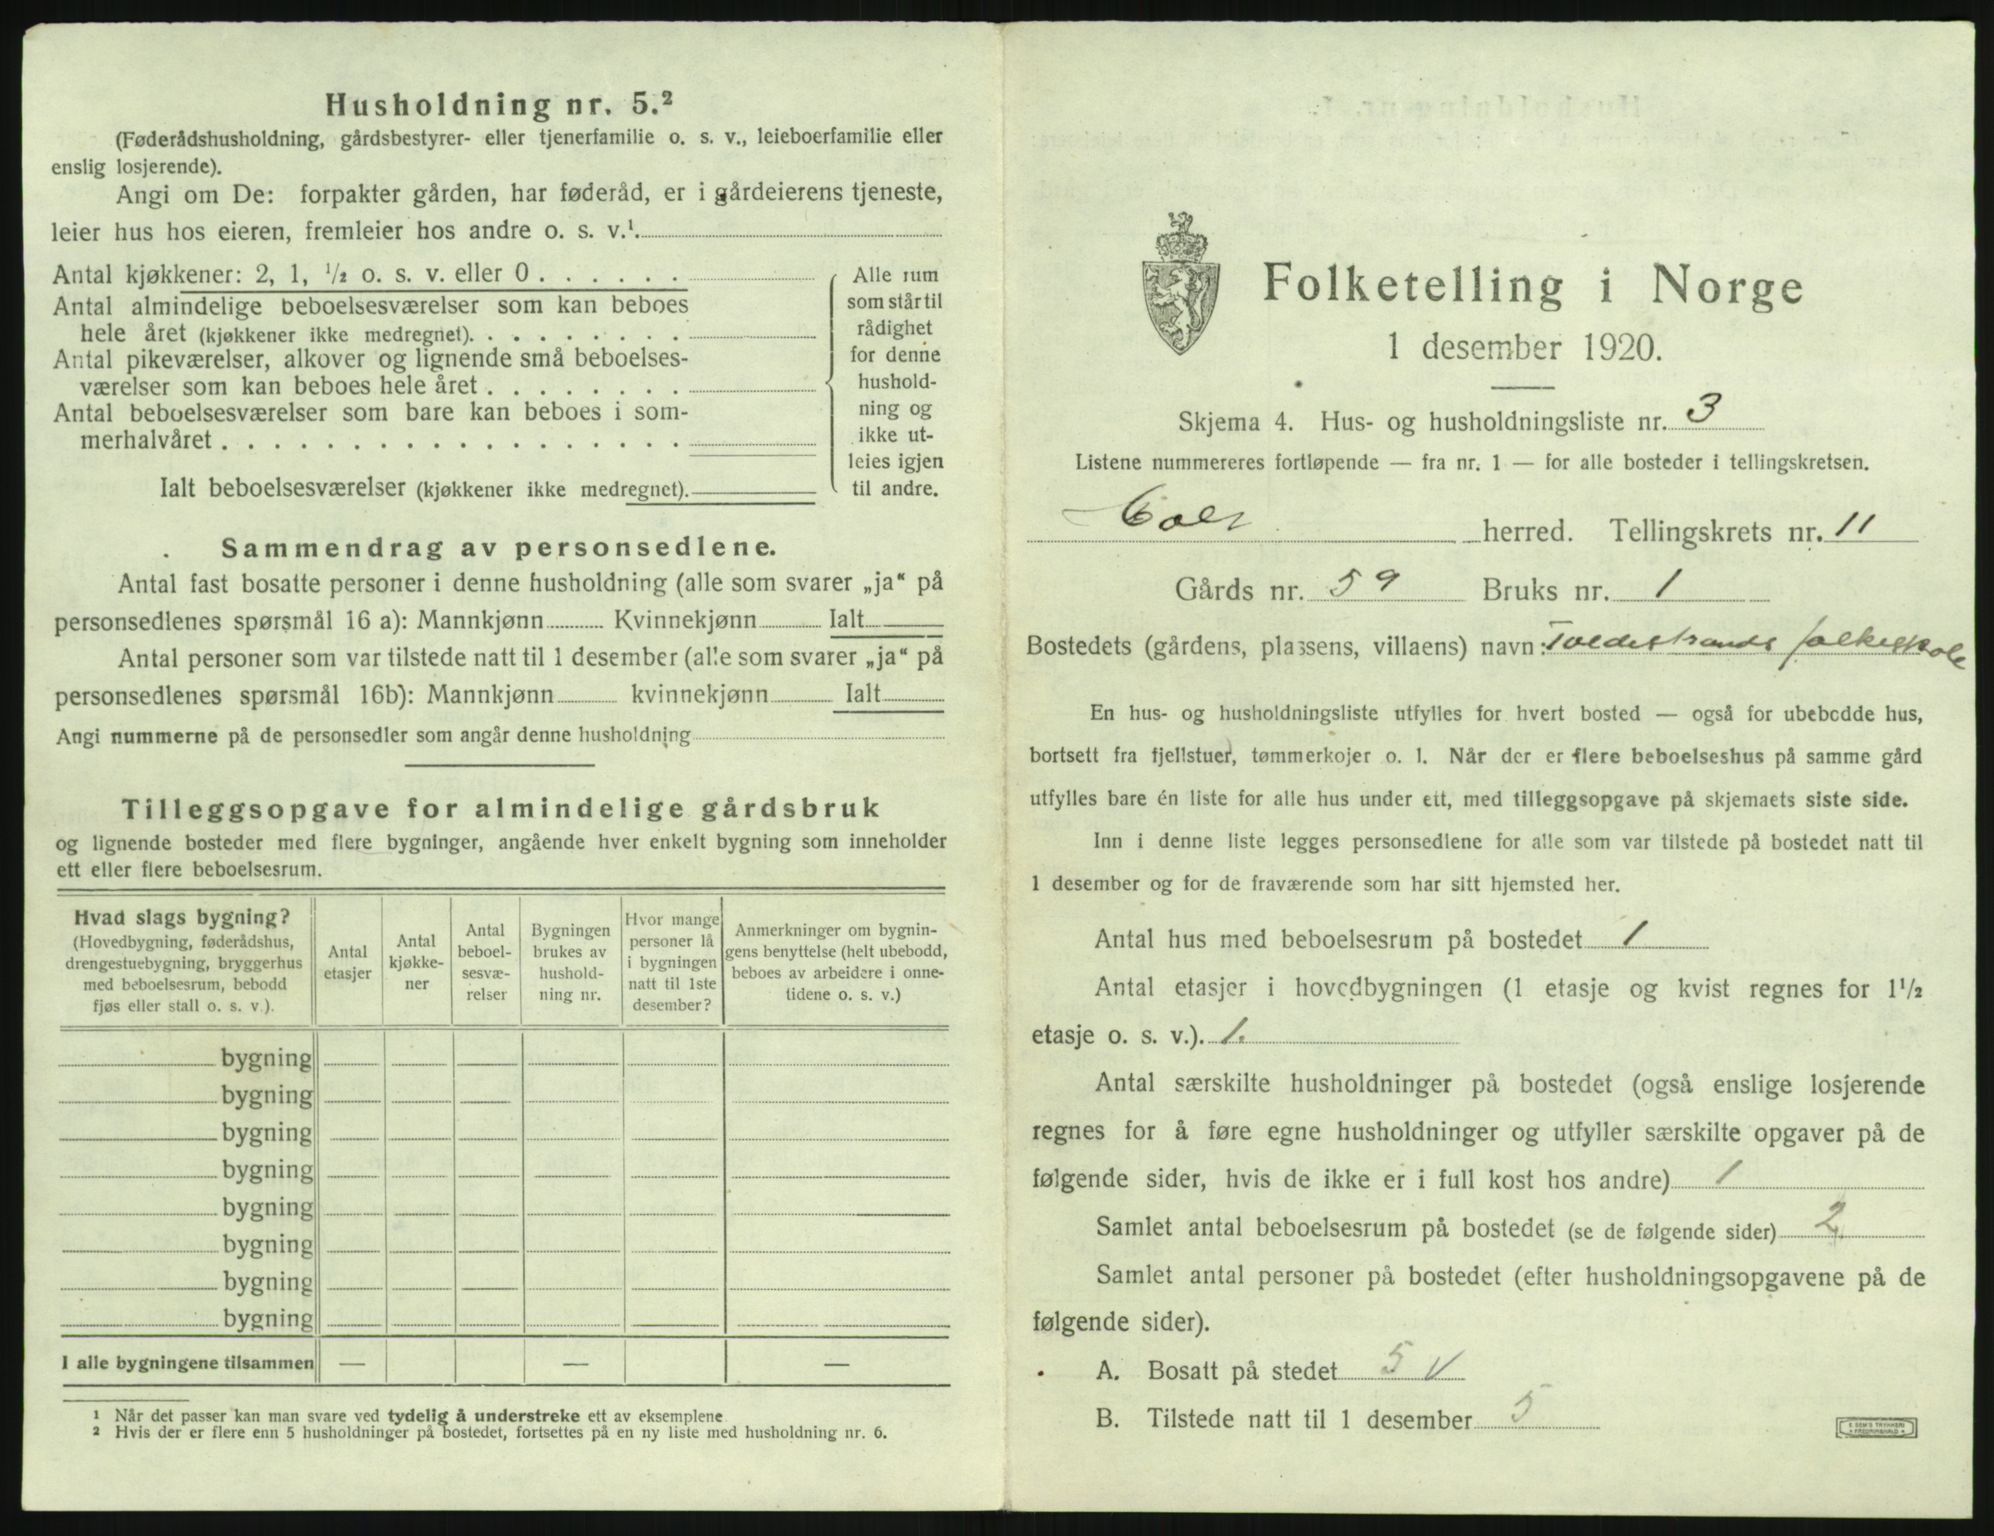 Husholdning nr. 5.²
(Føderådshusholdning, gårdsbestyrer- eller tjenerfamilie o. s. v., leieboerfamilie eller
enslig losjerende).
Angi om De: forpakter gården, har føderåd, er i gårdeierens tjeneste,
leier hus hos eieren, fremleier hos andre o. s. v.¹
Antal kjøkkener: 2, 1, ½ o. s. v. eller 0 . . . . . .
Antal almindelige beboelsesværelser som kan beboes
hele året (kjøkkener ikke medregnet). . . . . . . . .
Antal pikeværelser, alkover og lignende små beboelses-
værelser som kan beboes hele året . . . . . . . .
Antal beboelsesværelser som bare kan beboes i som-
merhalvåret . . . . . . . . . . . . . . . . . .
Ialt beboelsesværelser (kjøkkener ikke medregnet).
Alle rum
som står til
rådighet
for denne
hushold-
ning og
ikke ut-
leies igjen
til andre.
Sammendrag av personsedlene.
Antal fast bosatte personer i denne husholdning (alle som svarer „ja“ på
personsedlenes spørsmål 16 a): Mannkjønn Kvinnekjønn Ialt
Antal personer som var tilstede natt til 1 desember (alle som svarer „ja“ på
personsedlenes spørsmål 16b): Mannkjønn kvinnekjønn Ialt
Angi nummerne på de personsedler som angår denne husholdning
Tilleggsopgave for almindelige gårdsbruk
og lignende bosteder med flere bygninger, angående hver enkelt bygning som inneholder
ett eller flere beboelsesrum.
Hvad slags bygning?
(Hovedbygning, føderådshus,
drengestuebygning, bryggerhus
med beboelsesrum, bebodd
fjøs eller stall o. s. v.).
Antal
etasjer
Antal
kjøkke-
ner
Antal
beboel-
sesvæ-
relser
Bygningen
brukes av
hushold-
ning nr.
Hvor mange
personer lå
i bygningen
natt til 1ste
desember?
Anmerkninger om bygnin-
gens benyttelse (helt ubebodd,
beboes av arbeidere i onne-
tidene o. s. v.)
bygning
bygning
bygning
bygning
bygning
bygning
bygning
bygning
I alle bygningene tilsammen — — —
¹ Når det passer kan man svare ved tydelig å understreke ett av eksemplene
² Hvis der er flere enn 5 husholdninger på bostedet, fortsettes på en ny liste med husholdning nr. 6.
Folketelling i Norge
1 desember 1920.
Skjema 4. Hus- og husholdningsliste nr. 3
Listene nummereres fortløpende — fra nr. 1 — for alle bosteder i tellingskretsen.
herred. Tellingskrets nr. 11
Gårds nr. 59 Bruks nr. 1
Bostedets (gårdens, plassens, villaens) navn: Toldestrands folkeskole
En hus- og husholdningsliste utfylles for hvert bosted — også for ubebodde hus,
bortsett fra fjellstuer, tømmerkojer o. l. Når der er flere beboelseshus på samme gård
utfylles bare én liste for alle hus under ett, med tilleggsopgave på skjemaets siste side.
Inn i denne liste legges personsedlene for alle som var tilstede på bostedet natt til
1 desember og for de fraværende som har sitt hjemsted her.
Antal hus med beboelsesrum på bostedet 1
Antal etasjer i hovedbygningen (1 etasje og kvist regnes for 1½
etasje o. s. v.). 1.
Antal særskilte husholdninger på bostedet (også enslige losjerende
regnes for å føre egne husholdninger og utfyller særskilte opgaver på de
følgende sider, hvis de ikke er i full kost hos andre) 1
Samlet antal beboelsesrum på bostedet (se de følgende sider) 2
Samlet antal personer på bostedet (efter husholdningsopgavene på de
følgende sider).
A. Bosatt på stedet 5 V
B. Tilstede natt til 1 desember 5